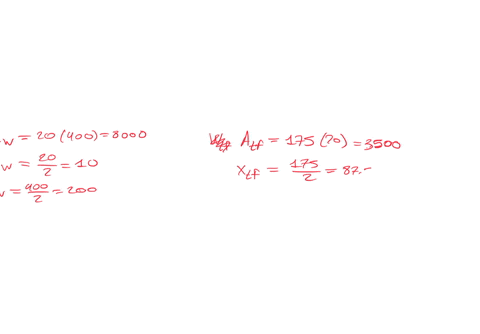 w = 20 (400) = 8000
w = 20/2 = 10
= 400/2 = 200
A_tf = 175 (20) = 3500
X_tf = 175/2 = 87.